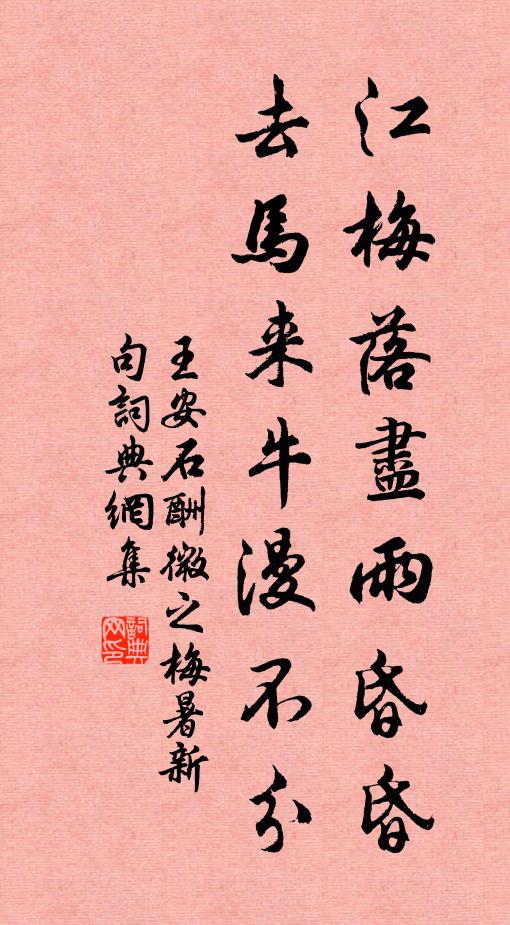 江梅落盡雨昏昏
去馬來牛漫不分
王安石酬微之梅暑新
句詞典網集
詞典网印